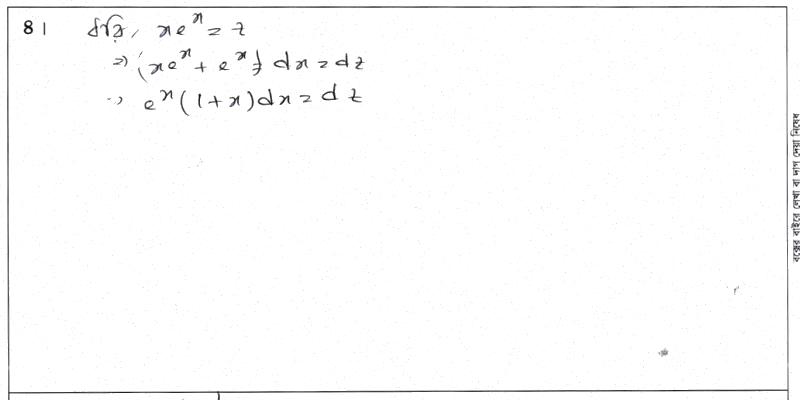 8| ধরি, xe^x = z
⇒ (xe^x + e^x) dx = dz
⇒ e^x (1+x) dx = dz
বক্সের বাইরে লেখা বা দাগ দেয়া নিষেধ